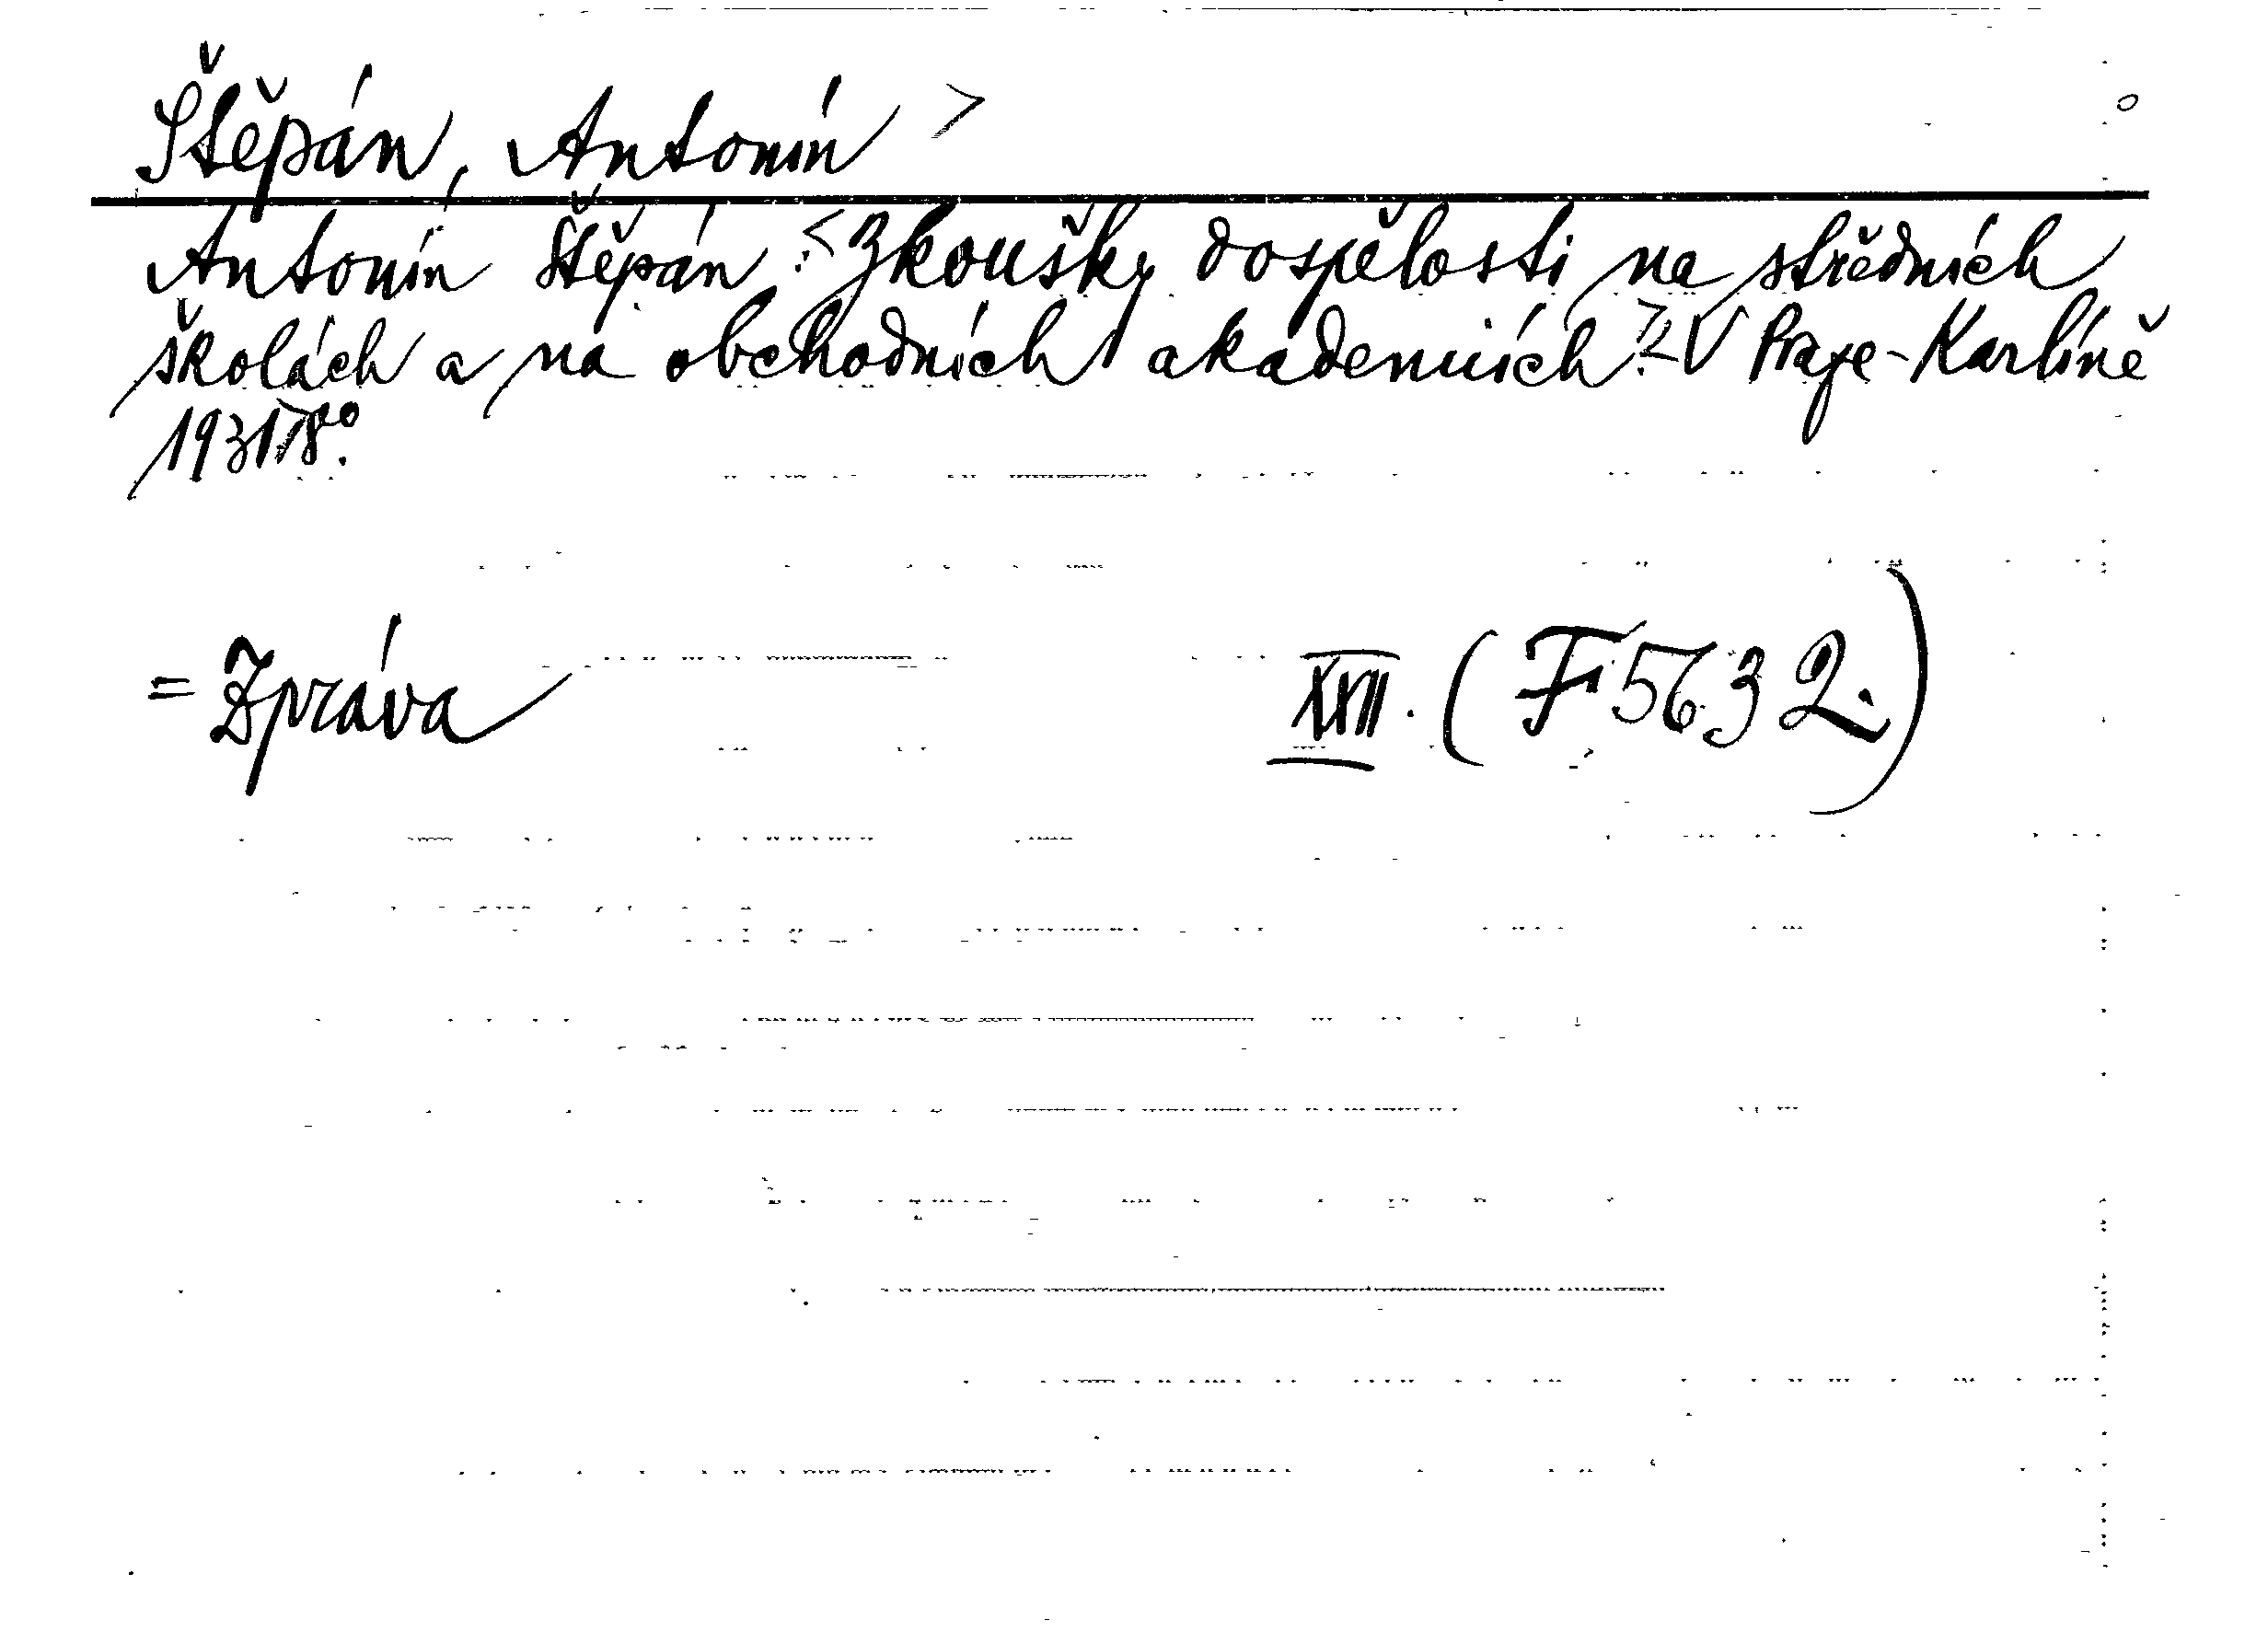 Štěpán, Antonín >
Antonín Štěpán :< Zkoušky dospělosti na středních
školách a na obchodních akademiích.> V Praze-Karlíně
1931 8°.
= Zpráva XXII. (F 5632.)